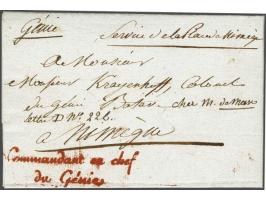 Génie Service de la Place de Nimeg
a Monsieur
Monsieur Krayenhoff, Colonel
du Génie Batave chez M. de Man
lettre D No. 226.
a Nimègue
Commandant en chef
du Génie